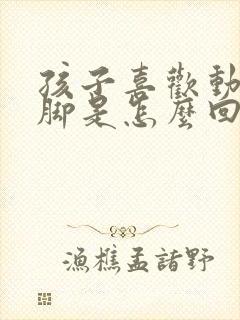 孩子喜歡動
腳是怎麼回
漁樵孟諸野